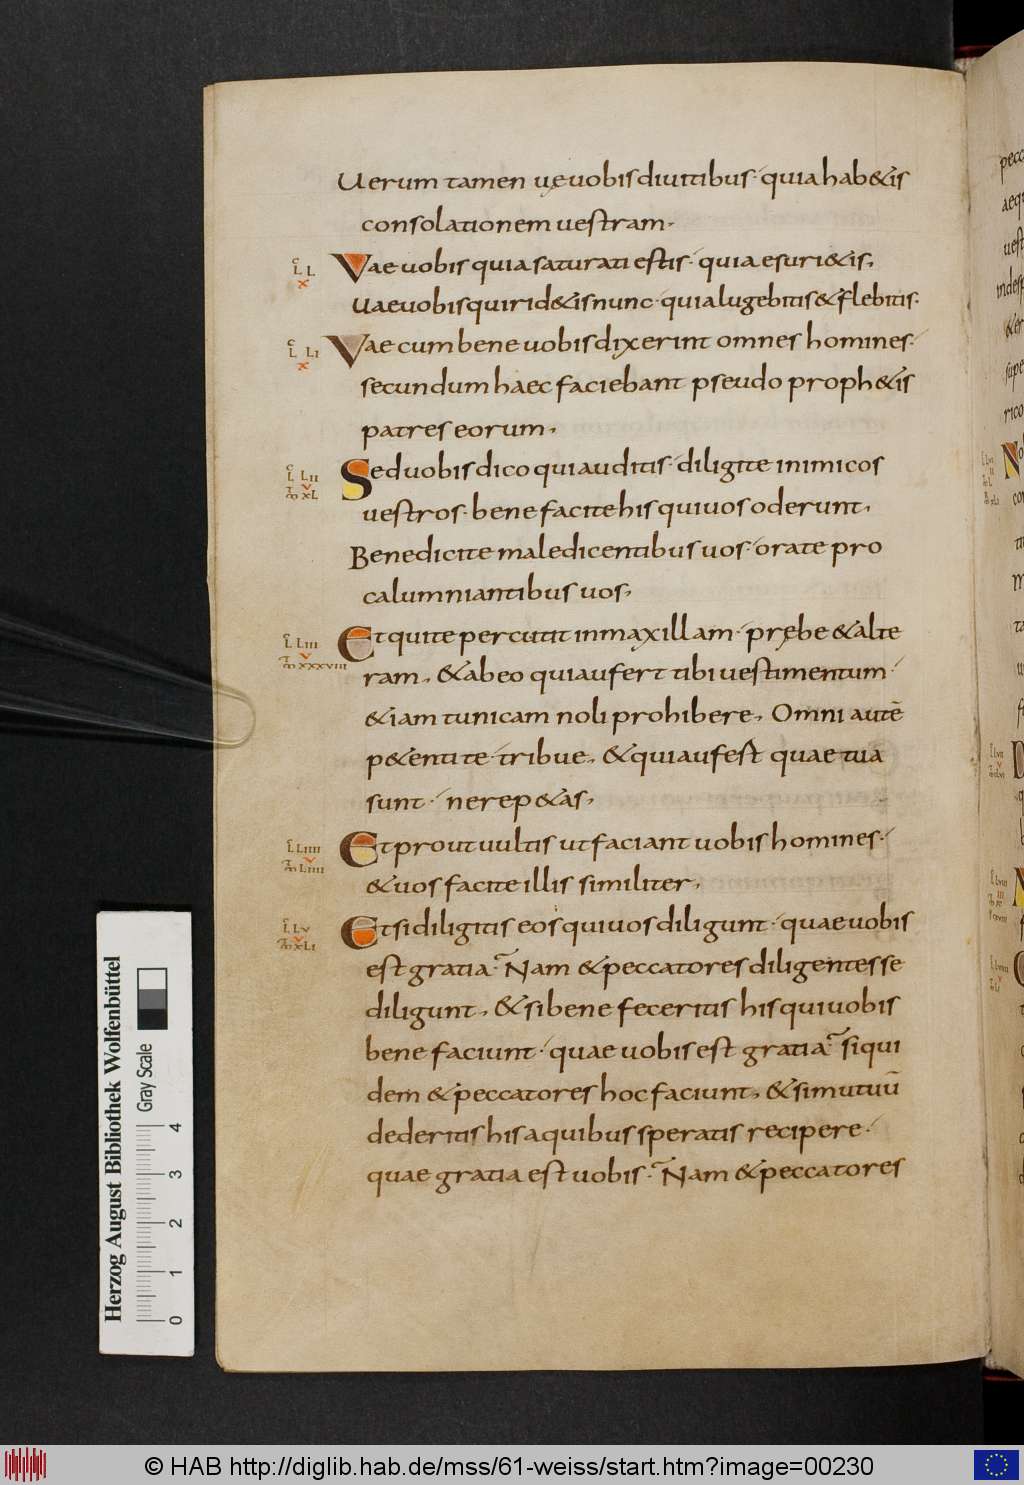 Uerum tamen uęuobisdiuitibus· quiahab&is
consolationem uestram.
L L
x
Vae uobis quia saturati estis· quia esuri&is,
Uaeuobisquirid&isnunc· quialugebitis&flebitis·
L LI
x
Vae cum bene uobis dixerint omnes homines·
secundum haec faciebant pseudo proph&is
patres eorum,
L LII
xL
Seduobisdico quiauditis· diligite inimicos
uestros· bene facite his quiuos oderunt,
Benedicite maledicentibus uos· orate pro
calumniantibus uos,
L LIII
xxxviii
Et quite percutit inmaxillam· prębe & alte
ram, & abeo quiaufert tibi uestimentum·
& iam tunicam noli prohibere, Omni autē
p&enti te tribue, & quiaufest quae tua
sunt· nerep&as,
L LIIII
LIIII
Et prout uultis ut faciant uobis homines·
& uos facite illis similiter,
L Lv
xLI
Etsi diligitis eos quiuosdiligunt· quaeuobis
est gratia· Nam & peccatores diligentesse
diligunt, & sibene feceritis his quiuobis
bene faciunt· quae uobis est gratia· siqui
dem & peccatores hoc faciunt, & simutuū
dederitis his aquibus speratis recipere·
quae gratia est uobis· Nam & peccatores
Herzog August Bibliothek Wolfenbüttel
Gray Scale
0 1 2 3 4
© HAB http://diglib.hab.de/mss/61-weiss/start.htm?image=00230